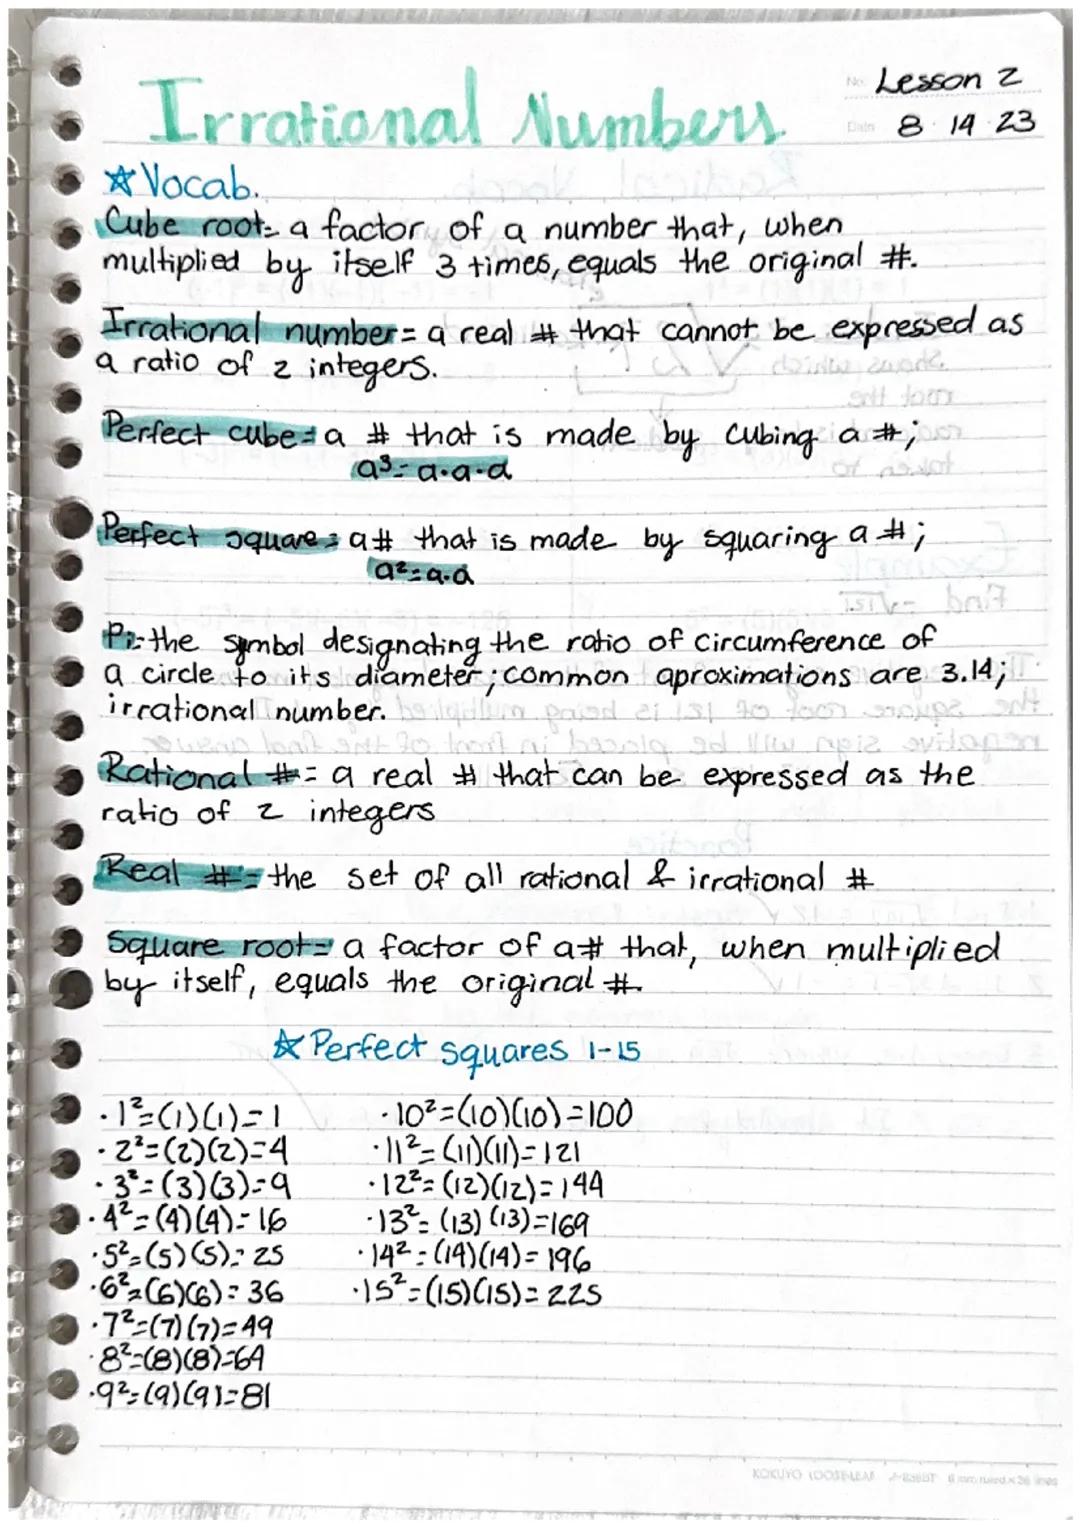 No. Lesson 2
Irrational Numbers
Date 8 14 23
☆ Vocab.
Cube root= a factor of a number that, when
multiplied by itself 3 times, equals the original #.
Irrational number= a real # that cannot be expressed as
a ratio of 2 integers.
Perfect cube= a # that is made by cubing a #;
a³=a·a·a
Perfect square= a # that is made by squaring a #;
a²=a·a
Pi=the symbol designating the ratio of circumference of
a circle to its diameter; common aproximations are 3.14;
irrational number.
Rational #= a real # that can be expressed as the
ratio of 2 integers
Real #= the set of all rational & irrational #
Square root= a factor of a# that, when multiplied
by itself, equals the original #.
☆ Perfect squares 1-15
·1²=(1)(1)=1
·2²=(2)(2)=4
·3²=(3)(3)=9
·4²=(4)(4)=16
·5²=(5)(5)=25
·6²=(6)(6)=36
·7²=(7)(7)=49
·8²=(8)(8)=64
·9²=(9)(9)=81
·10²=(10)(10)=100
·11²=(11)(11)=121
·12²=(12)(12)=144
·13²=(13)(13)=169
·14²=(14)(14)=196
·15²=(15)(15)=225
KOKUYO LOOSE-LEAF